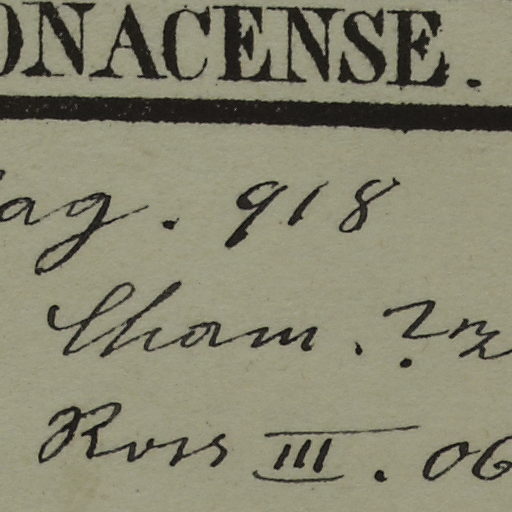 ONACENSE.
ag. 918
Cham. ?
Ross III. 06